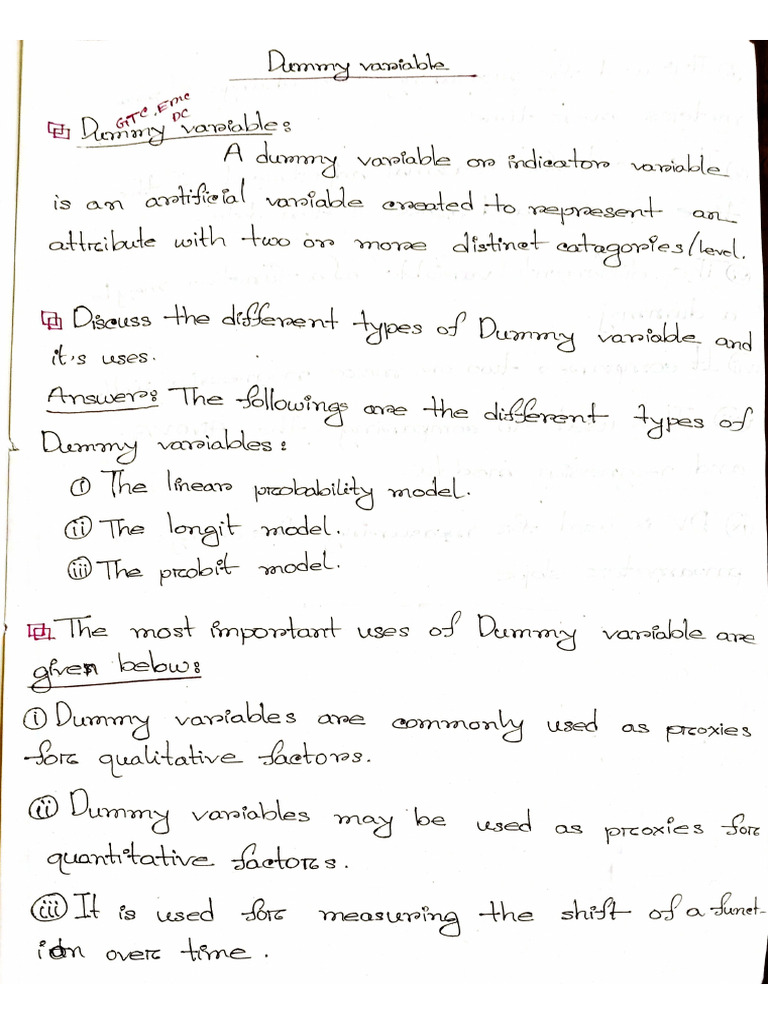 Dummy variable
GTC, EMC
DC
Dummy variable:
A dummy variable or indicator variable
is an artificial variable created to represent an
attribute with two or more distinct catagories/level.
Discuss the different types of Dummy variable and
it's uses.
Answer: The followings are the different types of
Dummy variables:
i The linear probability model.
ii The longit model.
iii The probit model.
The most important uses of Dummy variable are
given below:
i Dummy variables are commonly used as proxies
for qualitative factors.
ii Dummy variables may be used as proxies for
quantitative factors.
iii It is used for measuring the shift of a funct-
ion over time.